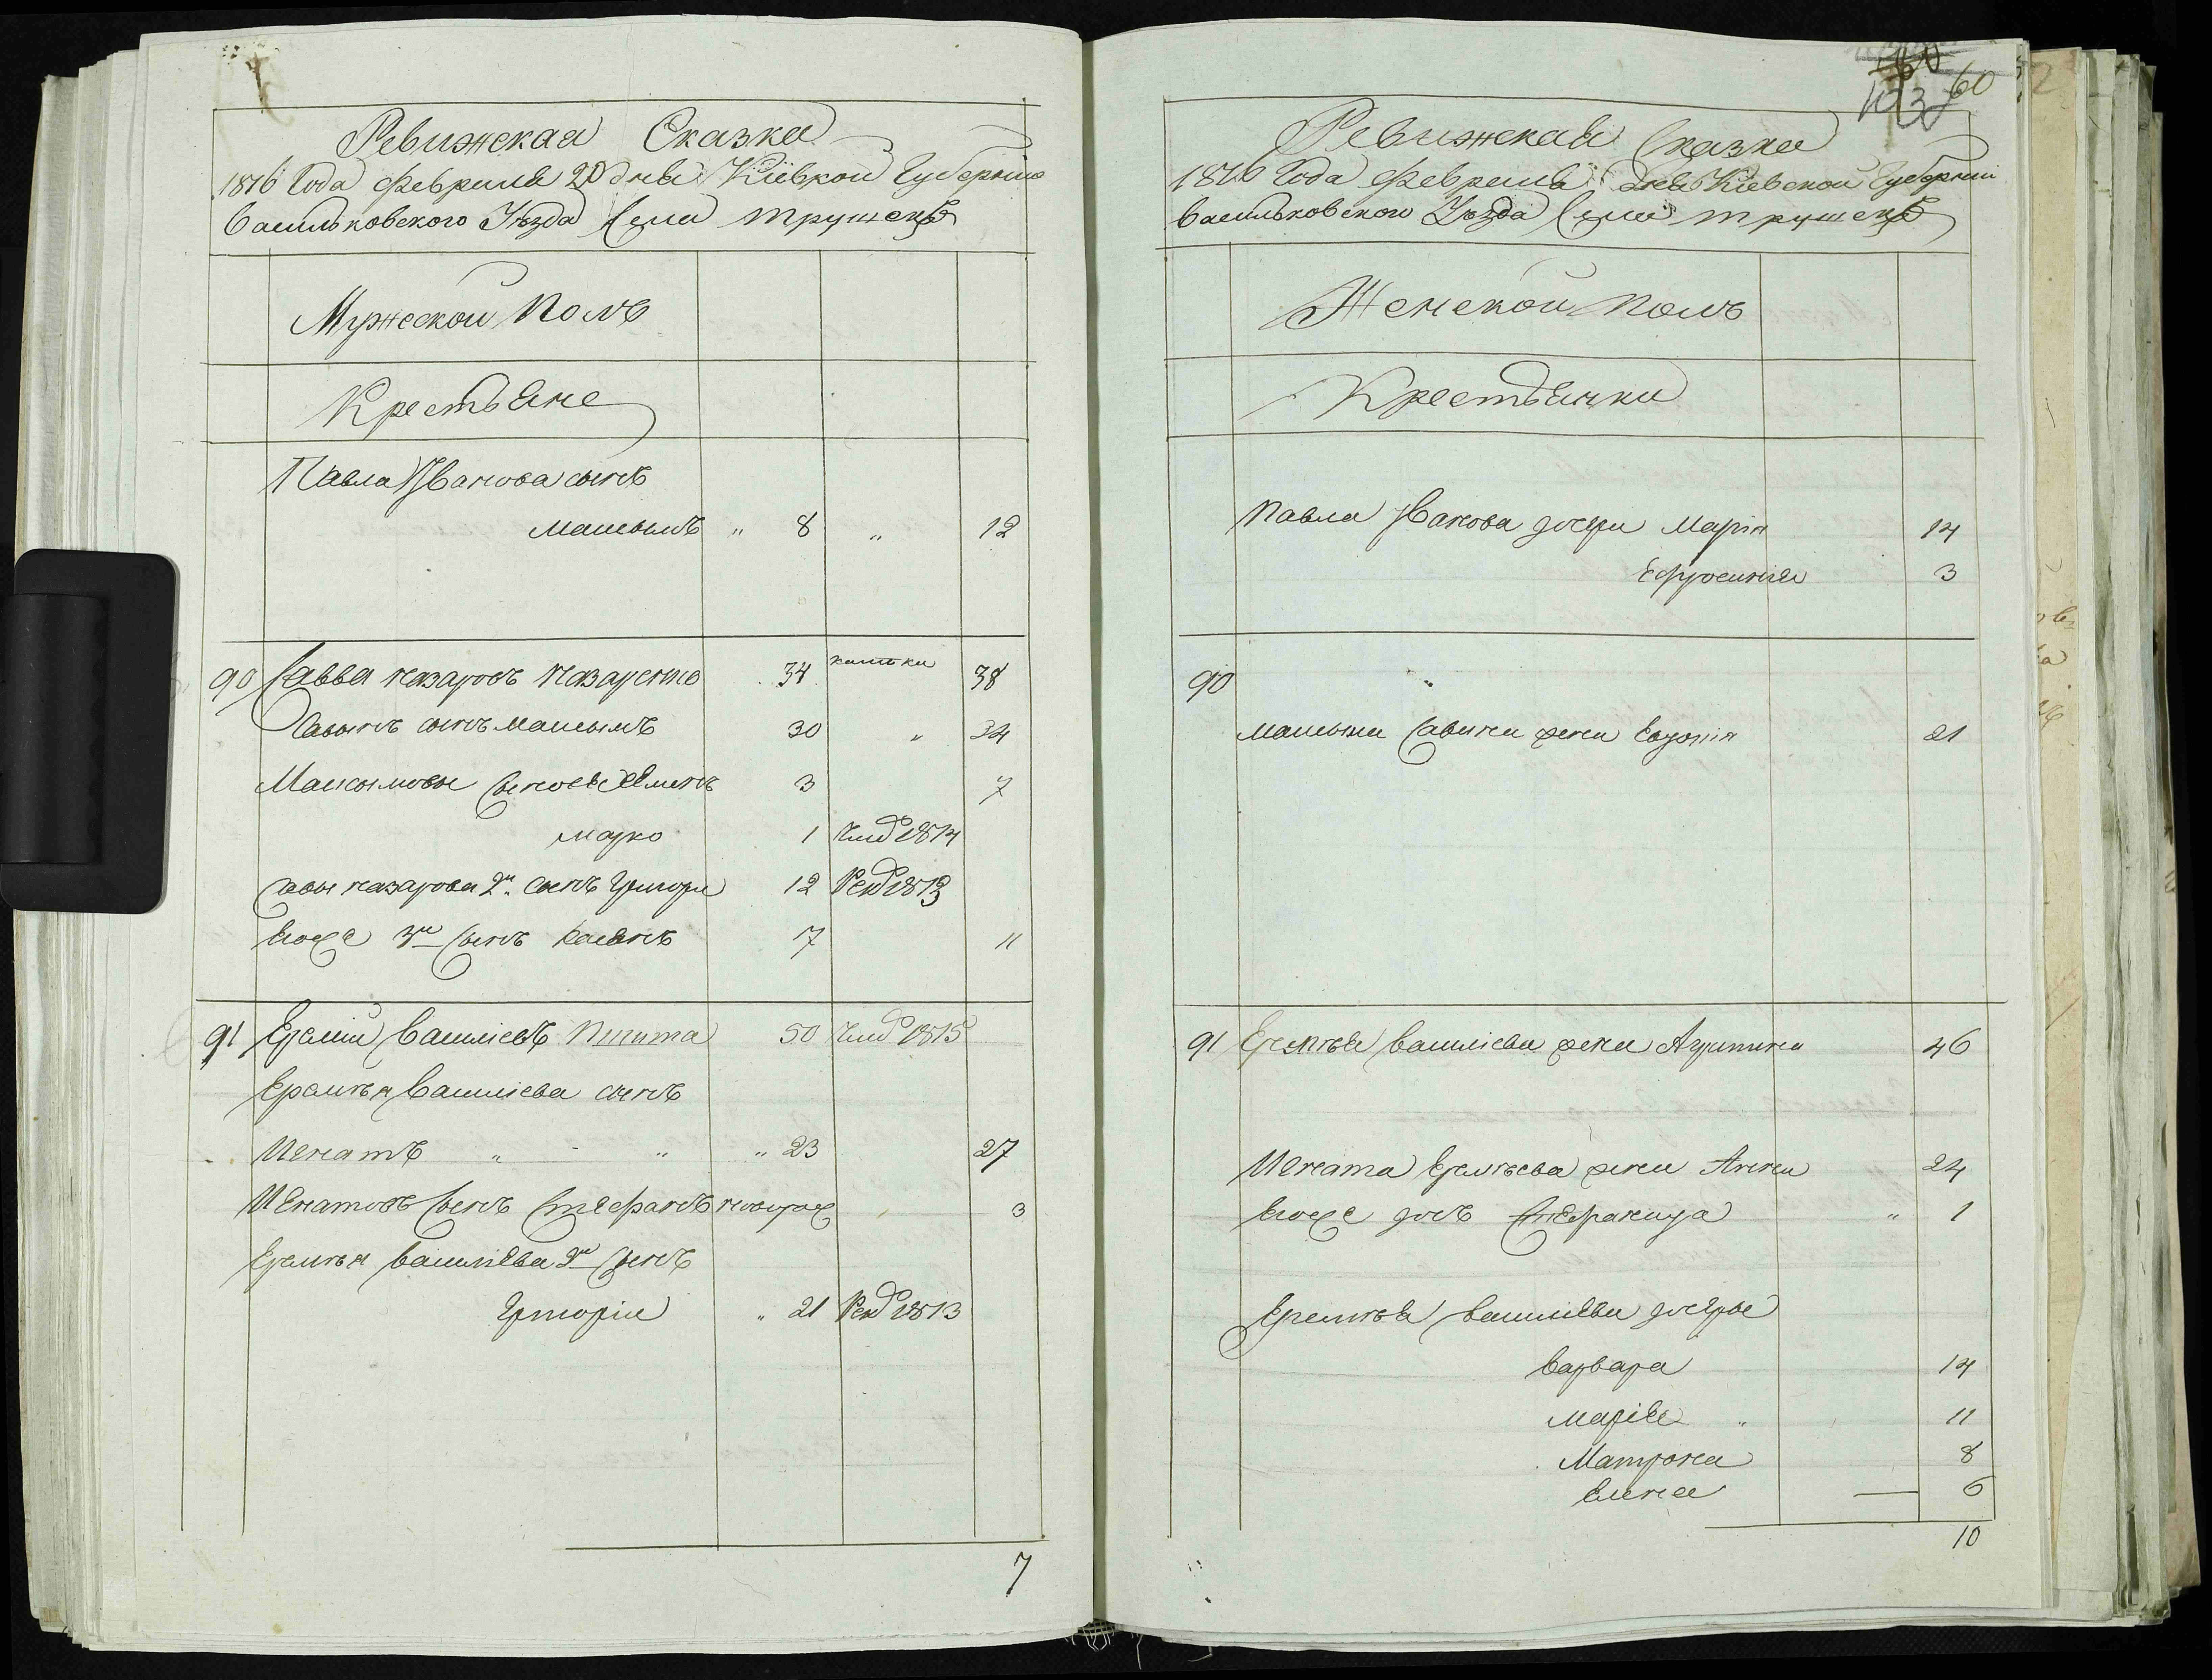 Ревижская Сказка
1816 Года февраля 20 дня Кіевкой Губерніи
Васильковского Уѣзда Села Трушекъ
Мужеской Полъ
Крестьяне
Павла Иванова сынъ
Максымъ " 8 " 12
90 Савва Назаровъ Назаренко 34 38
Савынъ сынъ Максымъ 30 " 34
Максымовы Сыновья 3 7
Марко 1 Умѣ 1814
Савы Назарова 2й Сынъ Григори 12 Рек 1813
Егоже 3й Сынъ Касянъ 7 11
91 Еремій Василіевъ Никита 50 Умѣ 1815
Еремѣя Василіева сынъ
Игнатъ " - " " 23 27
Игнатовъ Сынъ Стефанъ новорож 3
Еремѣя Василіева 2й Сынъ
Григорій " 21 Рек 1813
7
60
103
Ревижская Сказка
1816 Года февраля дня Кіевской Губерніи
Васильковского Уѣзда Села Трушекъ
Женской Полъ
Крестьянки
Павла Иванова дочери Марія 14
Ефросинія 3
90 "
Максыма Савина жена Евдокія 21
91 Еремѣя Василіева жена Агрипина 46
Игната Еремѣева жена Анна 24
Егоже дочь Стефанида " 1
Еремѣя Василіева дочеры
Варвара 14
Марія " 11
Матрона 8
Елена — 6
10